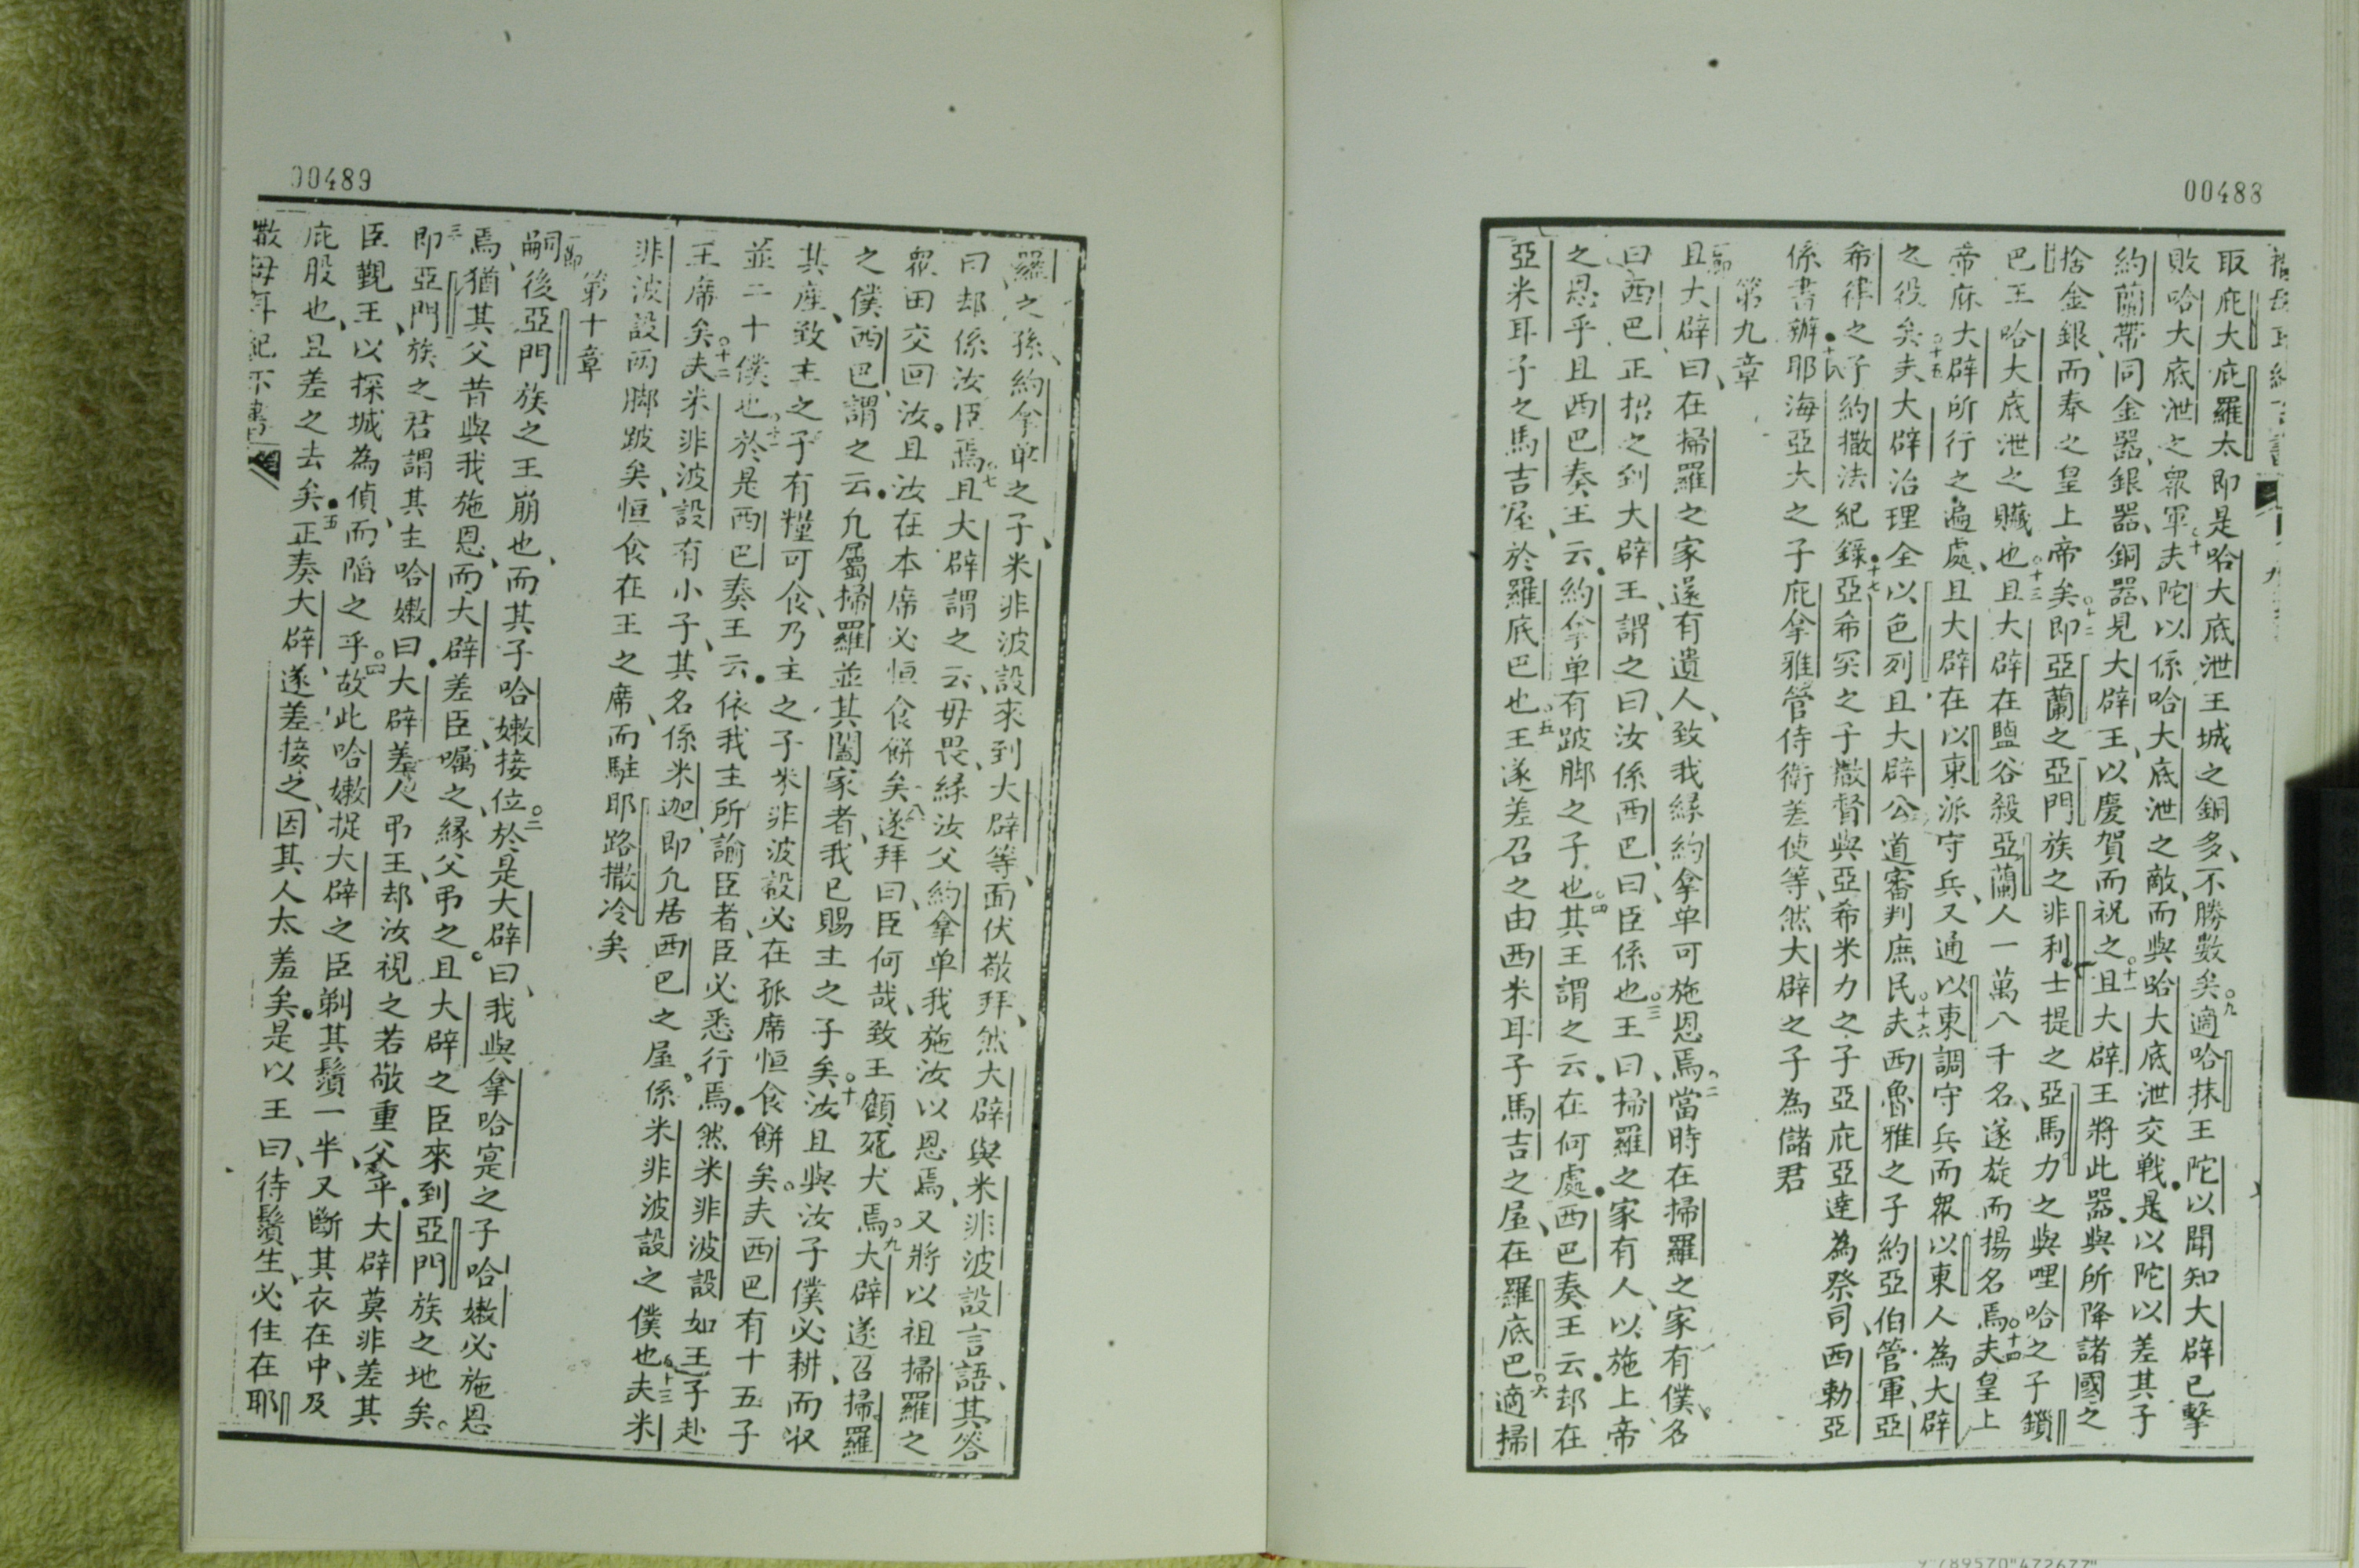 00488
取庇大庇羅太即是哈大底泄王城之銅多、不勝數矣○九適哈抹王陀以聞知大辟已擊
敗哈大底泄之眾軍○十夫陀以係哈大底泄之敵、而與哈大底泄交戰是以陀以差其子
約蘭帶同金器、銀器、銅器、見大辟王、以慶賀而祝之○十一且大辟王將此器、與所降諸國之
捨金銀、而奉之皇上帝矣○十二即亞蘭之亞門族之非利士提之亞馬力之與哩哈之子鎖
巴王哈大底泄之贓也○十三且大辟在鹽谷殺亞蘭人一萬八千名、遂旋而揚名焉○十四夫皇上
帝庥大辟所行之遍處、且大辟在以東派守兵、又通以東調守兵而眾以東人為大辟
之役矣○十五夫大辟治理全以色列且大辟公道審判庶民○十六夫西魯雅之子約亞伯管軍、亞
希律之子約撒法紀錄●十七亞希突之子撒督與亞希米力之子亞庇亞達為祭司、西勅亞
係書辦●十八耶海亞大之子庇拿雅管侍衛差使等、然大辟之子為儲君
第九章
一節且大辟曰、在掃羅之家、遂有遺人、致我緣約拿单可施恩焉○二當時在掃羅之家有僕、名
曰西巴、正招之到大辟王、謂之曰、汝係西巴、曰、臣係也○三王曰、掃羅之家有人、以施上帝
之恩乎、且西巴奏王云、約拿单有跛脚之子也○四其王謂之云、在何處●西巴奏王云、却在
亞米耳子之馬吉屋、於羅底巴也○五王遂差召之由西米耳子馬吉之屋、在羅底巴○六適掃
00489
羅之孫、約拿单之子、米非波設來到大辟等、面伏敬拜、然大辟與米非波設言語、其答
曰却係汝臣焉○七且大辟謂之云、毋畏、緣汝父約拿单我施汝以恩焉、又將以祖掃羅之
眾田交回汝●且汝在本席必恒食餅矣○八遂拜曰、臣何哉、致王顧死犬焉○九大辟遂召掃羅
之僕西巴、謂之云●凢屬掃羅並其闔家者、我已賜主之子矣○十汝且與汝子僕必耕、而收
其産、致主之子有糧可食、乃主之子米非波設必在孤席恒食餅矣○夫西巴有十五子
並二十僕也○十一於是西巴奏王云●依我主所諭臣者、臣必悉行焉●然米非波設如王子赴
王席矣○十二夫米非波設有小子、其名係米迦、即凢居西巴之屋●係米非波設之僕也○十三夫米
非波設両脚跛矣、恒食在王之席、而駐耶路撒冷矣
第十章
一節嗣後亞門族之王崩也、而其子哈嫩接位○二於是大辟曰、我與拿哈寔之子哈嫩必施恩
焉、猶其父昔與我施恩、而大辟差臣囑之、緣父弔之●且大辟之臣來到亞門族之地矣○
三即亞門族之君謂其主哈嫩曰●大辟差人弔王、却汝視之若敬重父乎●大辟莫非差其
臣覲王、以探城為偵、而陷之乎○四故此哈嫩捉大辟之臣剃其鬚一半、又斷其衣在中、及
庇股也、且差之去矣●五正奏大辟、遂差接之、因其人太羞矣●是以王曰、待鬚生、必住在耶